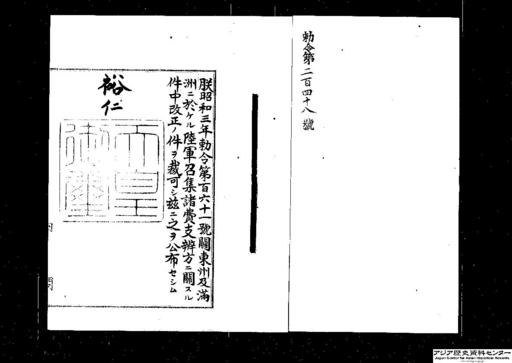 勅令第二百四十八號
朕昭和三年勅令第百六十一號關東州及滿
洲ニ於ケル陸軍召集諸費支辨方ニ關スル
件中改正ノ件ヲ裁可シ茲ニ之ヲ公布セシム
裕仁
天皇
御璽
内閣
アジア歴史資料センター
Japan Center for Asian Historical Records